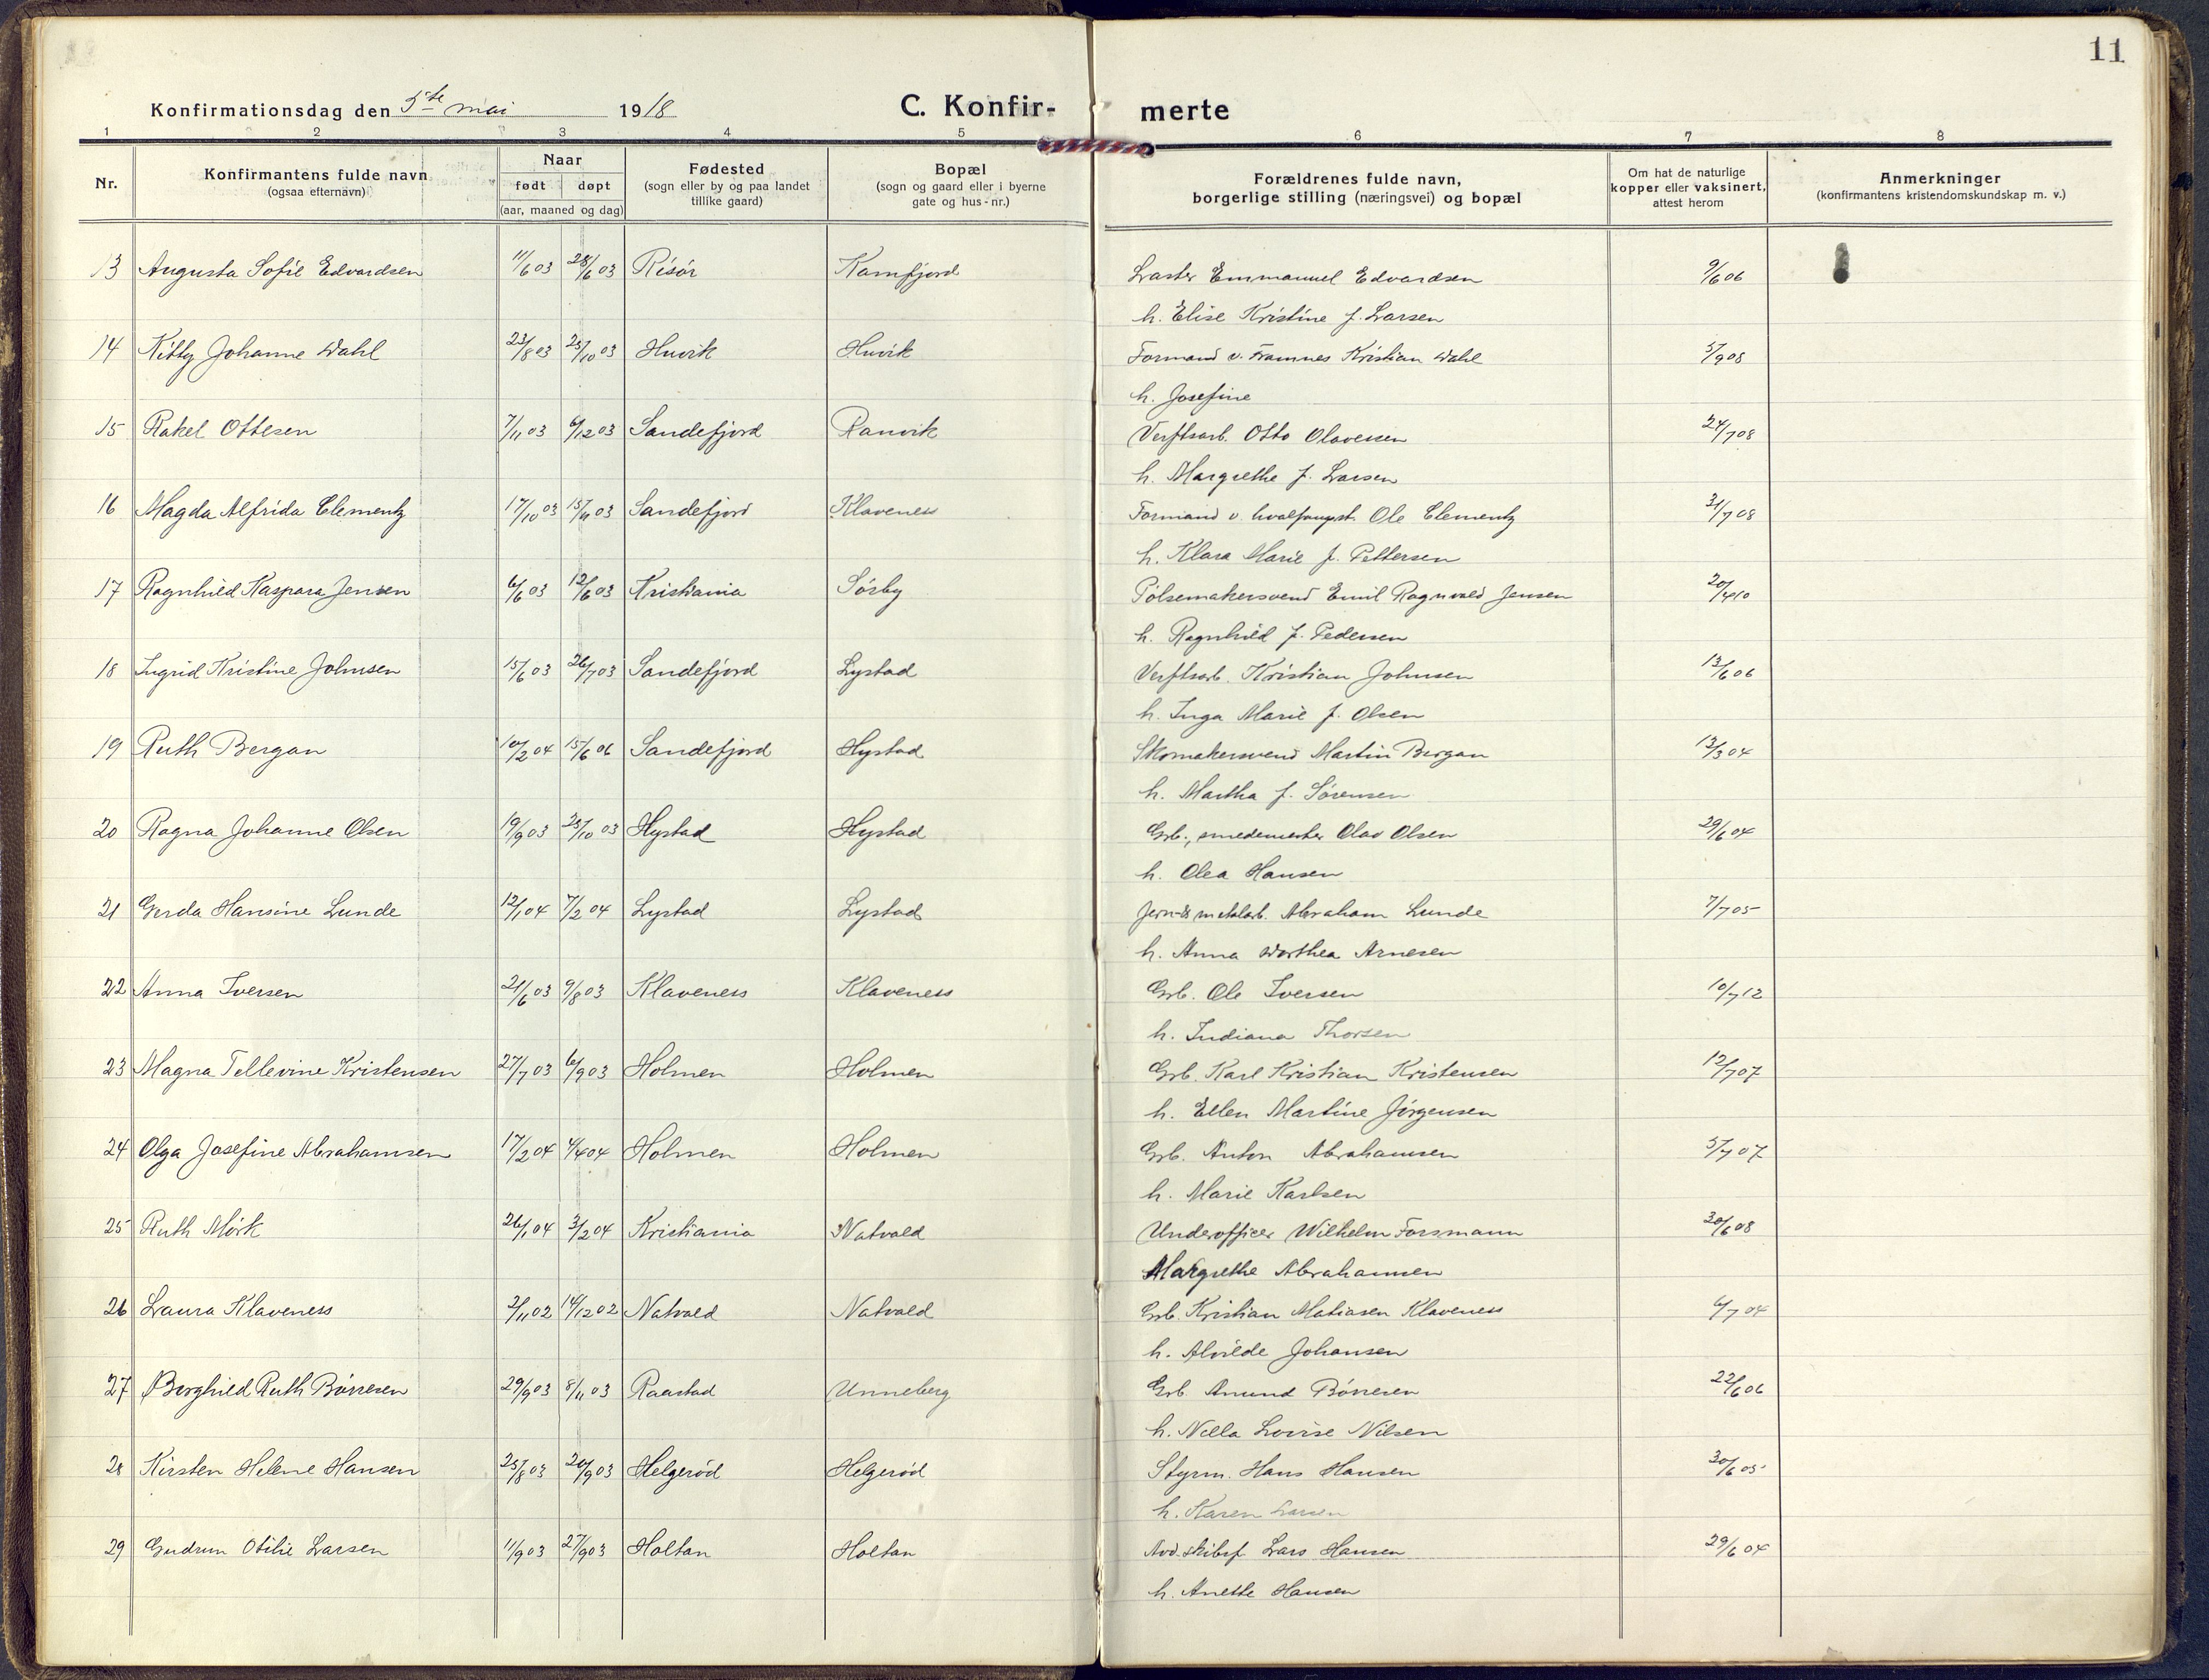 11
Konfirmationsdag den 5te mai 1918 C. Konfir- merte
1 2 3 4 5 6 7 8
Nr. Konfirmantens fulde navn (ogsaa efternavn) Naar født døpt (aar, maaned og dag) Fødested (sogn eller by og paa landet tillike gaard) Bopæl (sogn og gaard eller i byerne gate og hus-nr.) Forældrenes fulde navn, borgerlige stilling (næringsvei) og bopæl Om hat de naturlige kopper eller vaksinert, attest herom Anmerkninger (konfirmantens kristendomskundskap m. v.)
13 Augusta Sofie Edvardsen 11/6 03 28/6 03 Risör Kamfjord Emmanuel Edvardsen 9/6 06
h. Elise Kristine f. Larsen
14 Kitty Johanne Dahl 23/8 03 25/10 03 Huvik Huvik Formand v. Framnes Kristian Dahl 5/9 08
h. Josefine
15 Rakel Ottesen 7/11 03 6/12 03 Sandefjord Ranvik Verftsarb. Otto Olavesen 24/7 08
h. Margrethe f. Larsen
16 Magda Alfrida Clementz 17/10 03 15/11 03 Sandefjord Klaveness Formand v. hvalfangst. Ole Clementz 31/7 08
h. Klara Marie f. Pettersen
17 Ragnhild Kaspara Jensen 6/6 03 12/6 03 Kristiania Sörby Pölsemakersvend Emil Ragnvald Jensen 20/4 10
h. Ragnhild f. Pedersen
18 Ingrid Kristine Johnsen 15/6 03 26/7 03 Sandefjord Lystad Verftsarb. Kristian Johnsen 13/6 06
h. Inga Marie f. Olsen
19 Ruth Bergan 10/2 04 15/6 06 Sandefjord Hystad Skomakersvend Martin Bergan 13/3 04
h. Martha f. Sörensen
20 Ragna Johanne Olsen 19/9 03 25/10 03 Hystad Hystad Grb., smedemester Olav Olsen 29/6 04
h. Olea Hansen
21 Gerda Hansine Lunde 12/1 04 7/2 04 Lystad Lystad Jern- & metalarb. Abraham Lunde 7/7 05
h. Anna Dorthea Arnesen
22 Anna Iversen 21/6 03 9/8 03 Klaveness Klaveness Grb. Ole Iversen 10/7 12
h. Indiana Thorsen
23 Magna Tellevine Kristensen 27/7 03 6/9 03 Holmen Holmen Grb. Karl Kristian Kristensen 12/7 07
h. Ellen Martine Jörgensen
24 Olga Josefine Abrahamsen 17/2 04 4/4 04 Holmen Holmen Grb. Anton Abrahamsen 5/7 07
h. Marie Karlsen
25 Ruth Mörk 26/1 04 3/2 04 Kristiania Natvald Underofficer Wilhelm Forsmann 30/6 08
Margrethe Abrahamsen
26 Laura Klaveness 2/11 02 14/12 02 Natvald Natvald Grb. Kristian Matiasen Klaveness 6/7 04
h. Alvilde Johansen
27 Borghild Ruth Börresen 29/9 03 8/11 03 Raastad Unneberg Grb. Amund Börresen 22/6 06
h. Nella Lovise Nilsen
28 Kirsten Helene Hansen 25/8 03 20/9 03 Helgeröd Helgeröd Styrm. Hans Hansen 30/6 05
h. Karen Larsen
29 Gudrun Otilie Larsen 11/9 03 27/9 03 Holtan Holtan Avd. skibsf. Lars Hansen 29/6 04
h. Anette Hansen